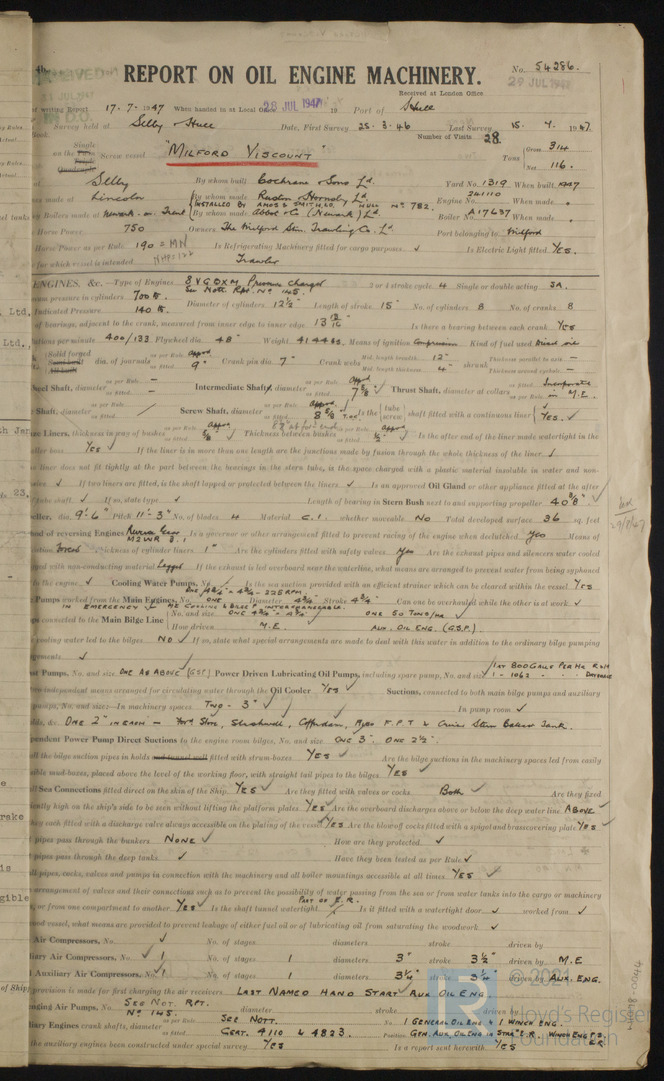 REPORT ON OIL ENGINE MACHINERY.
No. 54286.
29 JUL 1947
Received at London Office
of writing Report 17.7.1947 When handed in at Local Office 28 JUL 1947 19 Port of Hull
Survey held at Selby & Hull Date, First Survey 25.3.46 Last Survey 15.7.1947
Number of Visits 28.
Single
on the Screw vessel "MILFORD VISCOUNT"
Tons Gross 314
Net 116.
at Selby By whom built Cochrane & Sons Ld. Yard No. 1319 When built 1947
at Lincoln By whom made Ruston & Hornsby Ld. Engine No. 241110 When made
INSTALLED BY AMOS & SMITH LD. HULL No. 782.
Boilers made at Newark-on-Trent By whom made Abbot & Co (Newark) Ld. Boiler No. A17637 When made
Horse Power 750 Owners The Milford Stm. Trawling Co. Ld. Port belonging to Milford
Horse Power as per Rule 190 = MN Is Refrigerating Machinery fitted for cargo purposes Is Electric Light fitted Yes.
NHP=122
for which vessel is intended Trawler
ENGINES, &c. Type of Engines 8 VGDXM. Pressure Charged 2 or 4 stroke cycle 4 Single or double acting SA.
See Nott. Rpt. No. 145.
pressure in cylinders 700 lb. Diameter of cylinders 12½" Length of stroke 15" No. of cylinders 8 No. of cranks 8
Indicated Pressure 140 lb.
of bearings, adjacent to the crank, measured from inner edge to inner edge Is there a bearing between each crank Yes
Revolutions per minute 400/133 Flywheel dia. 48" Weight Means of ignition Compression Kind of fuel used Diesel oil
dia. of journals 9" Crank pin dia. 7" Crank webs Mid. length breadth 12" Mid. length thickness 4" shrunk
Shaft, diameter Intermediate Shafts, diameter 7 5/8" Thrust Shaft, diameter at collars Incorporated in M.E.
Shaft, diameter Screw Shaft, diameter 8 5/8" Is the tube screw shaft fitted with a continuous liner Yes.
Liners, thickness in way of bushes 5/8" Thickness between bushes ½" Is the after end of the liner made watertight in the
Yes If the liner is in more than one length are the junctions made by fusion through the whole thickness of the liner
liner does not fit tightly at the part between the bearings in the stern tube, is the space charged with a plastic material insoluble in water and non-
If two liners are fitted, is the shaft lapped or protected between the liners Is an approved Oil Gland or other appliance fitted at the after
tube shaft If so, state type Length of bearing in Stern Bush next to and supporting propeller 40 3/8"
dia. 9'-6" Pitch 11'-3" No. of blades 4 Material C.I. whether moveable No Total developed surface 36 sq. feet
of reversing Engines Reverse Gear Is a governor or other arrangement fitted to prevent racing of the engine when declutched Yes Means of
M2WR 3:1
Forced thickness of cylinder liners 1" Are the cylinders fitted with safety valves Yes Are the exhaust pipes and silencers water cooled
with non-conducting material Lagged If the exhaust is led overboard near the waterline, what means are arranged to prevent water from being syphoned
the engine Cooling Water Pumps, No. Is the sea suction provided with an efficient strainer which can be cleared within the vessel Yes
Pumps worked from the Main Engines, No. ONE Diameter 4¾" Stroke 4¾" Can one be overhauled while the other is at work
IN EMERGENCY ME COOLING & BILGE P. INTERCHANGEABLE.
connected to the Main Bilge Line No. and size ONE 4¾" x 4¾" ONE 50 TONS/HR
How driven M.E. AUX. OIL ENG. (G.S.P.)
cooling water led to the bilges NO If so, state what special arrangements are made to deal with this water in addition to the ordinary bilge pumping
Pumps, No. and size ONE AS ABOVE (G.S.P.) Power Driven Lubricating Oil Pumps, including spare pump, No. and size
independent means arranged for circulating water through the Oil Cooler Yes Suctions, connected to both main bilge pumps and auxiliary
pumps, No. and size:—In machinery spaces Two - 3" In pump room
ONE 2" IN EACH — Ford Store, Slushwell, Cofferdam, F.P.T. & Cruiser Stern Ballast Tank.
Power Pump Direct Suctions to the engine room bilges, No. and size ONE 3" ONE 2½".
all the bilge suction pipes in holds and tunnel well fitted with strum-boxes Yes Are the bilge suctions in the machinery spaces led from easily
mud-boxes, placed above the level of the working floor, with straight tail pipes to the bilges Yes
Sea Connections fitted direct on the skin of the Ship Yes Are they fitted with valves or cocks Both Are they fixed
high on the ship's side to be seen without lifting the platform plates Yes Are the overboard discharges above or below the deep water line ABOVE
they each fitted with a discharge valve always accessible on the plating of the vessel Yes Are the blow off cocks fitted with a spigot and brass covering plate Yes
pipes pass through the bunkers NONE How are they protected
pipes pass through the deep tanks Have they been tested as per Rule
all pipes, cocks, valves and pumps in connection with the machinery and all boiler mountings accessible at all times Yes
arrangement of valves and their connections such as to prevent the possibility of water passing from the sea or from water tanks into the cargo or machinery
or from one compartment to another Yes Is the shaft tunnel watertight Part of E.R. Is it fitted with a watertight door worked from
vessel, what means are provided to prevent leakage of either fuel oil or of lubricating oil from saturating the woodwork
Air Compressors, No. No. of stages diameters stroke driven by
Air Compressors, No. 1 No. of stages 1 diameters 3" stroke 3½" driven by M.E
Auxiliary Air Compressors, No. 1 No. of stages 1 diameters 3¼" stroke 3¼" driven by AUX. ENG.
provision is made for first charging the air receivers LAST NAMED HAND START AUX OIL ENG.
Air Pumps, No. SEE NOT. RPT. No 145. diameter stroke driven by
Engines crank shafts, diameter as per Rule SEE NOTT. as fitted CERT. 4110 & 4823. No. 1 GENERAL OIL ENG & 1 WINCH ENG.
Position GEN. AUX. OIL ENG IN STARD E.R. WINCH ENG P.S. E.R.
the auxiliary engines been constructed under special survey Yes Is a report sent herewith Yes
© 2021
Lloyd's Register
Foundation